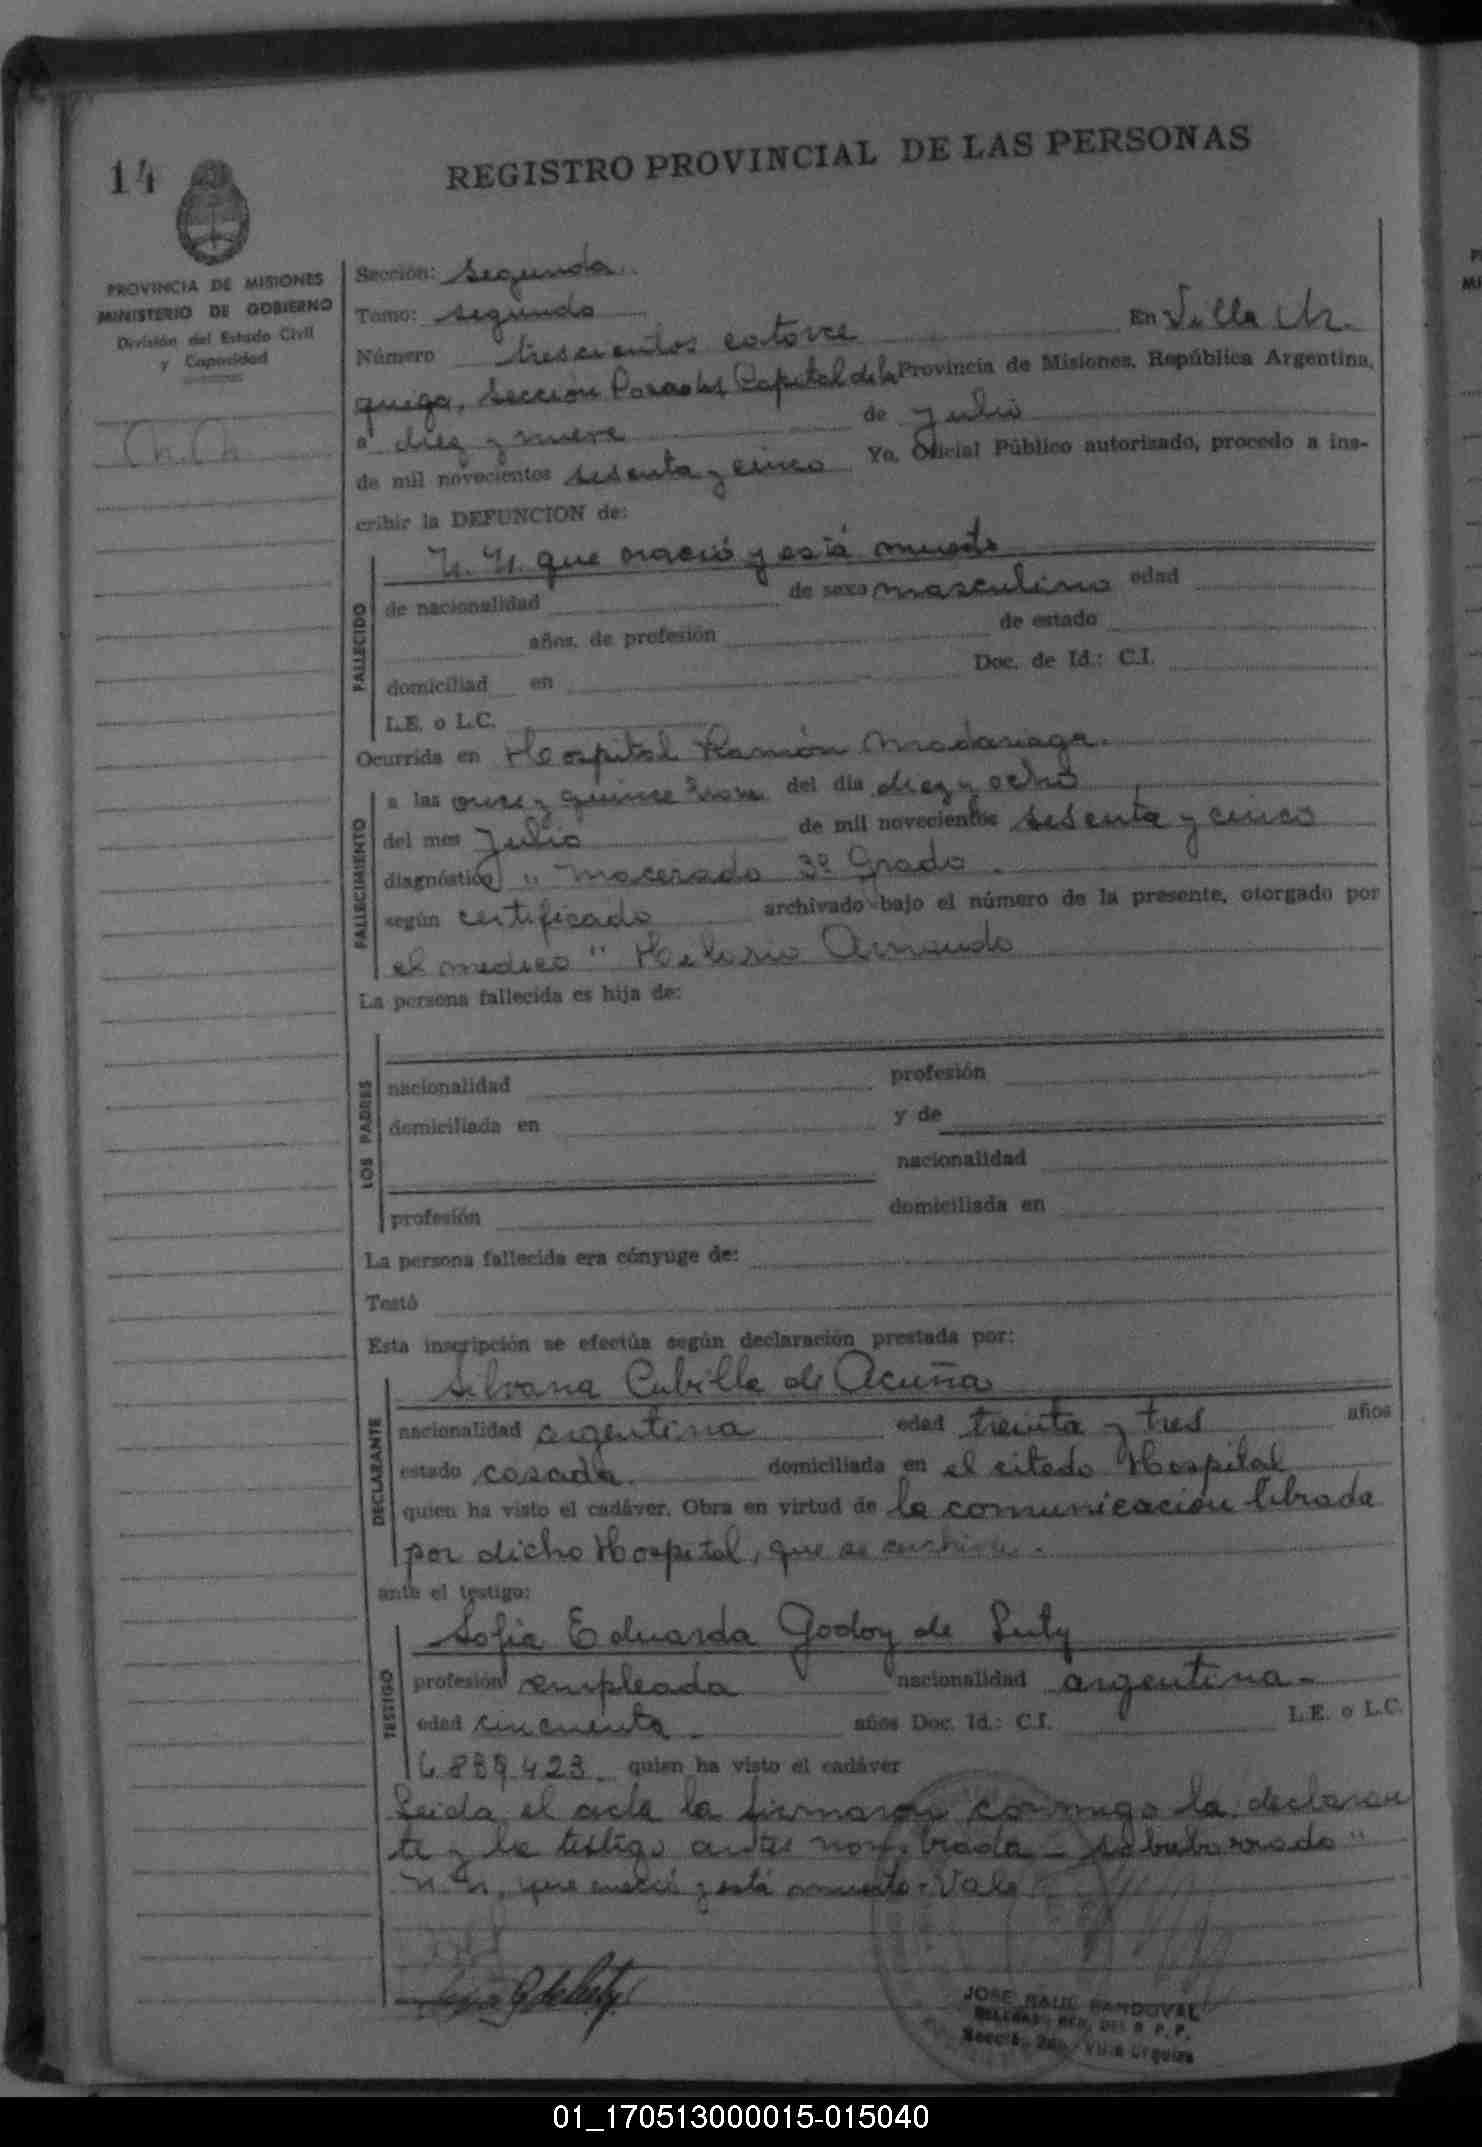 14
REGISTRO PROVINCIAL DE LAS PERSONAS
PROVINCIA DE MISIONES
MINISTERIO DE GOBIERNO
División del Estado Civil
y Capacidad
Sección: Segunda
Tomo: segundo
Número trescientos catorce En Villa Ur.
quiza, Sección Posadas Capital de la Provincia de Misiones, República Argentina,
a diez y nueve de Julio
de mil novecientos sesenta y cinco Yo, Oficial Público autorizado, procedo a ins-
cribir la DEFUNCION de:
FALLECIDO
N. N. que nació y está muerto
de nacionalidad de sexo masculino edad
años, de profesión de estado
domiciliad en Doc. de Id.: C.I.
L.E. o L.C.
Ocurrida en Hospital Ramón Madariaga.
FALLECIMIENTO
a las once y quince horas del día diez y ocho
del mes Julio de mil novecientos sesenta y cinco
diagnóstico " macerado 3º Grado
según certificado archivado bajo el número de la presente, otorgado por
el medico " Arnaudo
La persona fallecida es hija de:
LOS PADRES
nacionalidad profesión
domiciliada en y de
nacionalidad
profesión domiciliada en
La persona fallecida era cónyuge de:
Testó
Esta inscripción se efectúa según declaración prestada por:
DECLARANTE
Silvana Cubilla de Acuña
nacionalidad argentina edad treinta y tres años
estado casada domiciliada en el citado Hospital
quien ha visto el cadáver. Obra en virtud de la comunicación librada
por dicho Hospital, que se archiva.
ante el testigo:
TESTIGO
Sofia Eduarda Godoy de Luty
profesión empleada nacionalidad argentina -
edad cincuenta años Doc. Id.: C.I. L.E. o L.C.
6.839.423 quien ha visto el cadáver
Leida el acta la firmaron conmigo la declaran
te y la testigo antes nombrada - sobreborrado "
N. N. que nació y está muerto - Vale
JOSE RAUL SANDOVAL
R. P. P.
Secció. 2da. Villa Urquiza
01_170513000015-015040